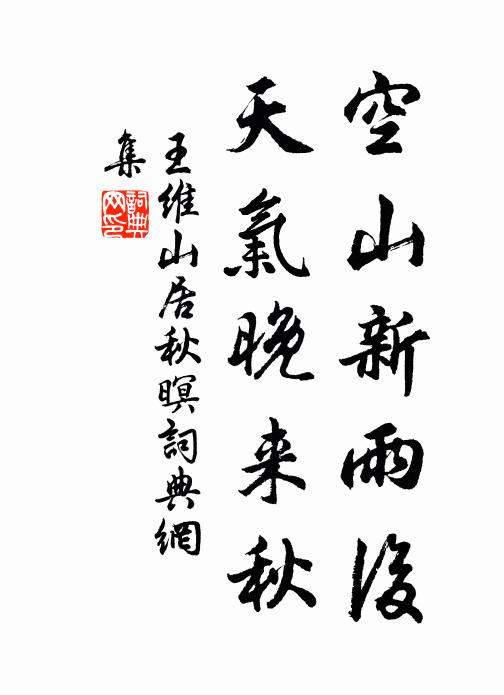 空山新雨後
天氣晚来秋
王維山居秋暝詞典網
集
詞典網印